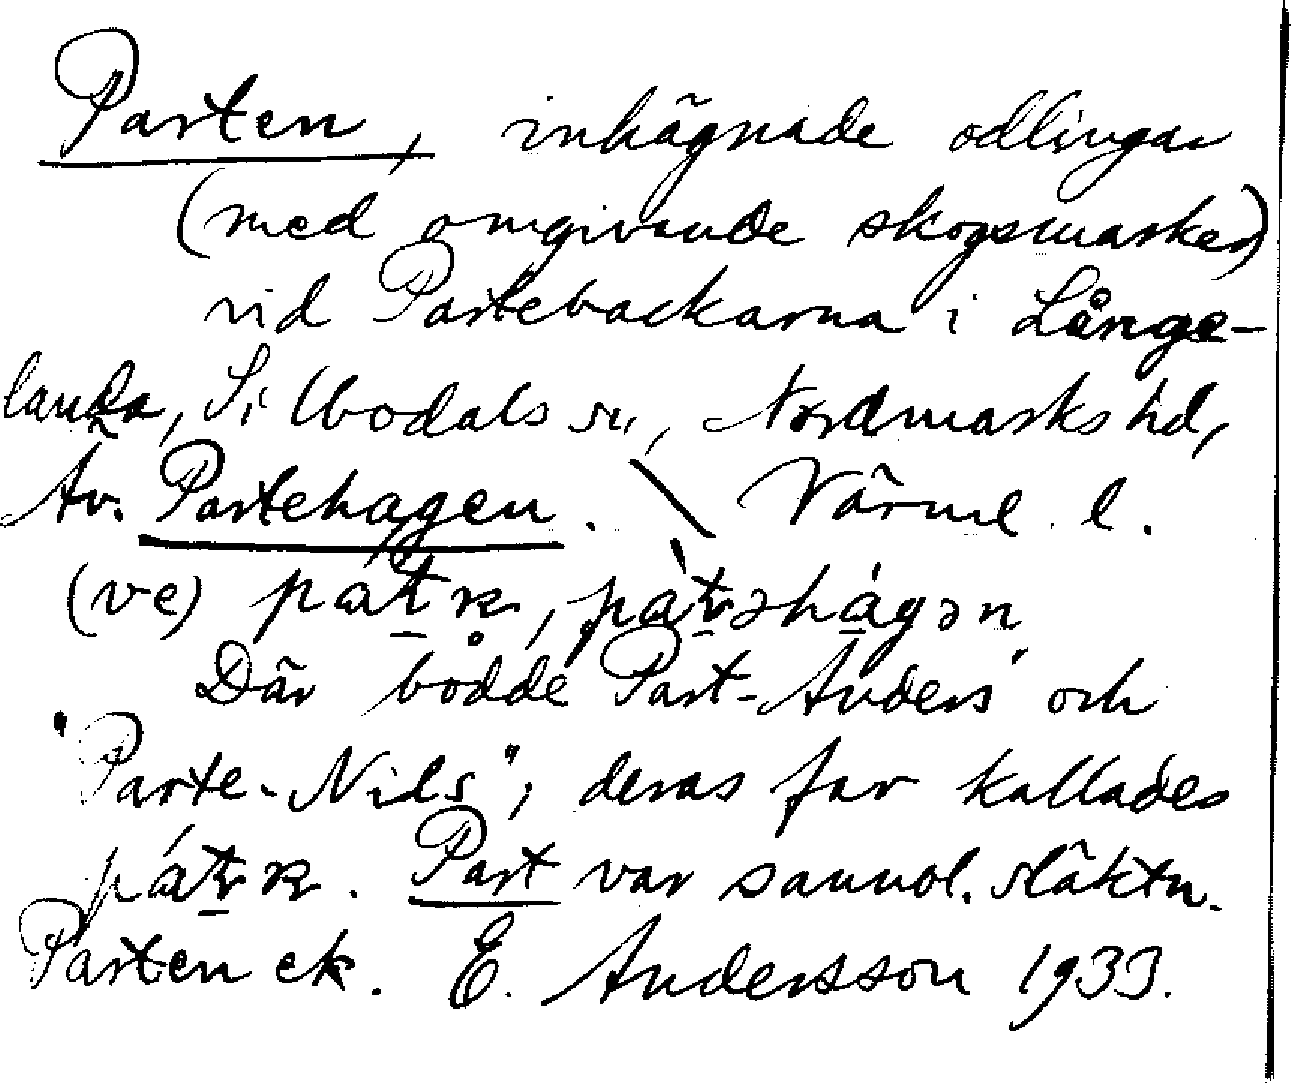 Parten, inhägnade odlingar
(med omgivande skogsmarker)
vid Partebackarna i Långe-
landa, Silbodals sn, Nordmarks hd,
Äv. Partehagen. \ Värml. l.
(ve)
Där bodde Part-Anders och
"Parte-Nils", deras far kallades
Part var sannol. släktn.
Parten ek. E. Andersson 1933.